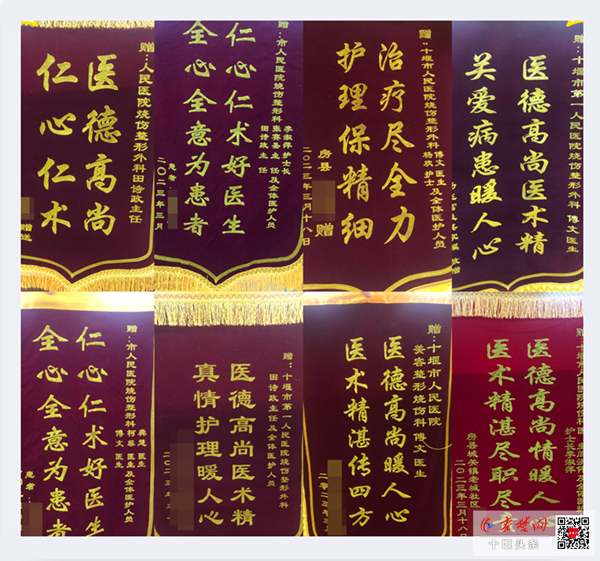 赠：人民医院烧伤整形外科田诗政主任
医德高尚
仁心仁术
赠：市人民医院烧伤整形科
李淑萍护士长
田诗政主任
及全体医护人员
仁心仁术好医生
全心全意为患者
患者：
二〇二三年三月
赠：十堰市人民医院烧伤整形外科
傅文医生及全体医护人员
杨欢护士
治疗尽全力
护理保精细
房县
赠
二〇二三年三月十八日
赠：十堰市第一人民医院烧伤整形外科 傅文医生
医德高尚医术精
关爱病患暖人心
赠：市人民医院烧伤整形科
龚思医生
傅文医生
及全体医护人员
仁心仁术好医生
全心全意为患者
患者：
赠：十堰市第一人民医院烧伤整形外科
田诗政主任及全体医护人员
医德高尚医术精
真情护理暖人心
二〇二三年
赠：十堰市第一人民医院
美容整形烧伤科 傅文医生
医德高尚暖人心
医术精湛传四方
赠：十堰市第一人民医院烧伤整形外科
护士长李淑萍
医德高尚情暖人
医术精湛尽职尽
房县城关镇老城社区
二〇二三年三月十八日
秦楚网
十堰头条